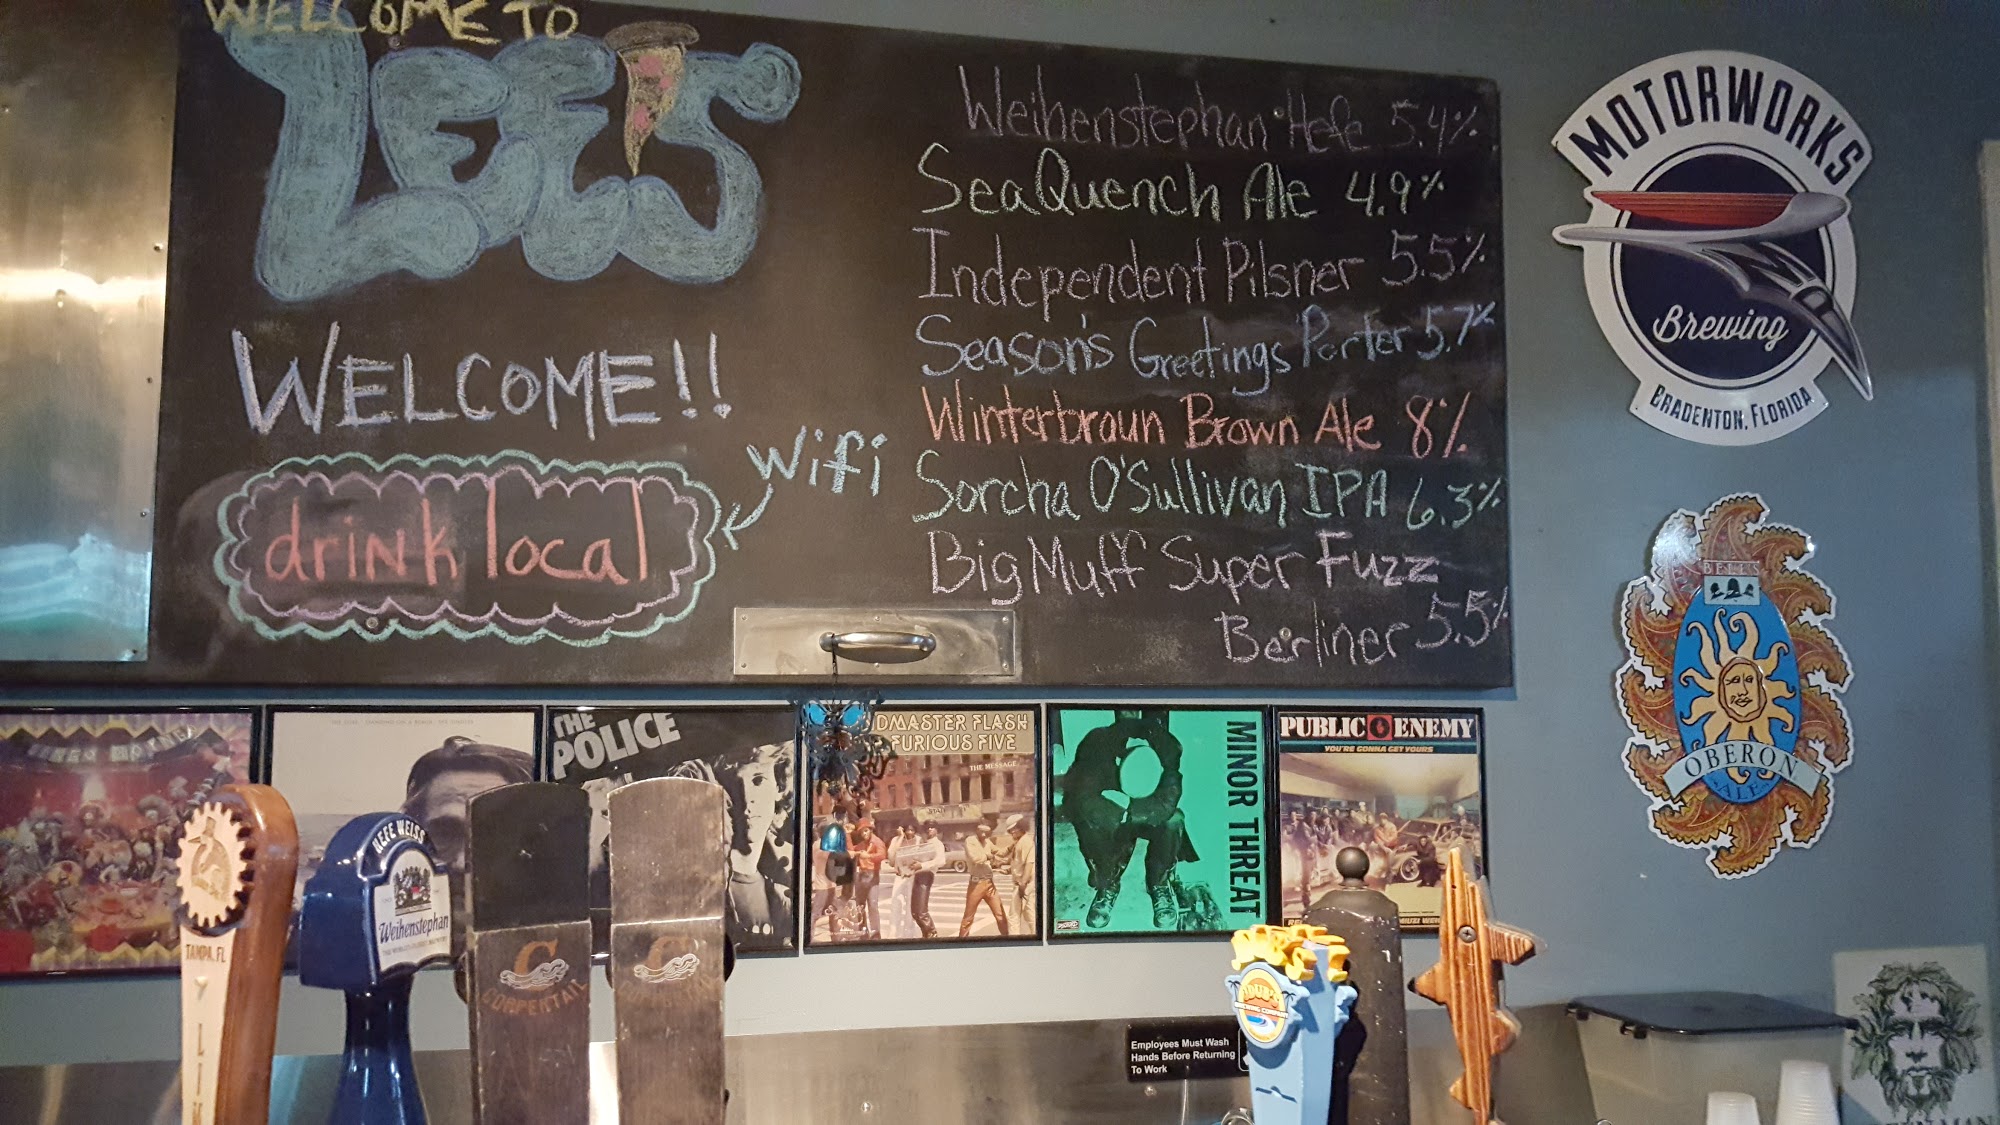 WELCOME TO
LEE'S
WELCOME!!
drink local
Wifi
Weihenstephan Hefe 5.4%
SeaQuench Ale 4.9%
Independent Pilsner 5.5%
Season's Greetings Porter 5.7%
Winterbraun Brown Ale 8%
Sorcha O'Sullivan IPA 6.3%
Big Muff Super Fuzz
Berliner 5.5%
MOTORWORKS
Brewing
BRADENTON, FLORIDA
BELL'S
OBERON
ALE
THE
POLICE
DMASTER FLASH
FURIOUS FIVE
THE MESSAGE
MINOR THREAT
PUBLIC ENEMY
YOU'RE GONNA GET YOURS
TAMPA, FL
HEFE WEISS
Weihenstephan
C
COPPERTAIL
C
3DUB'S
BREWING COMPANY
Employees Must Wash
Hands Before Returning
To Work